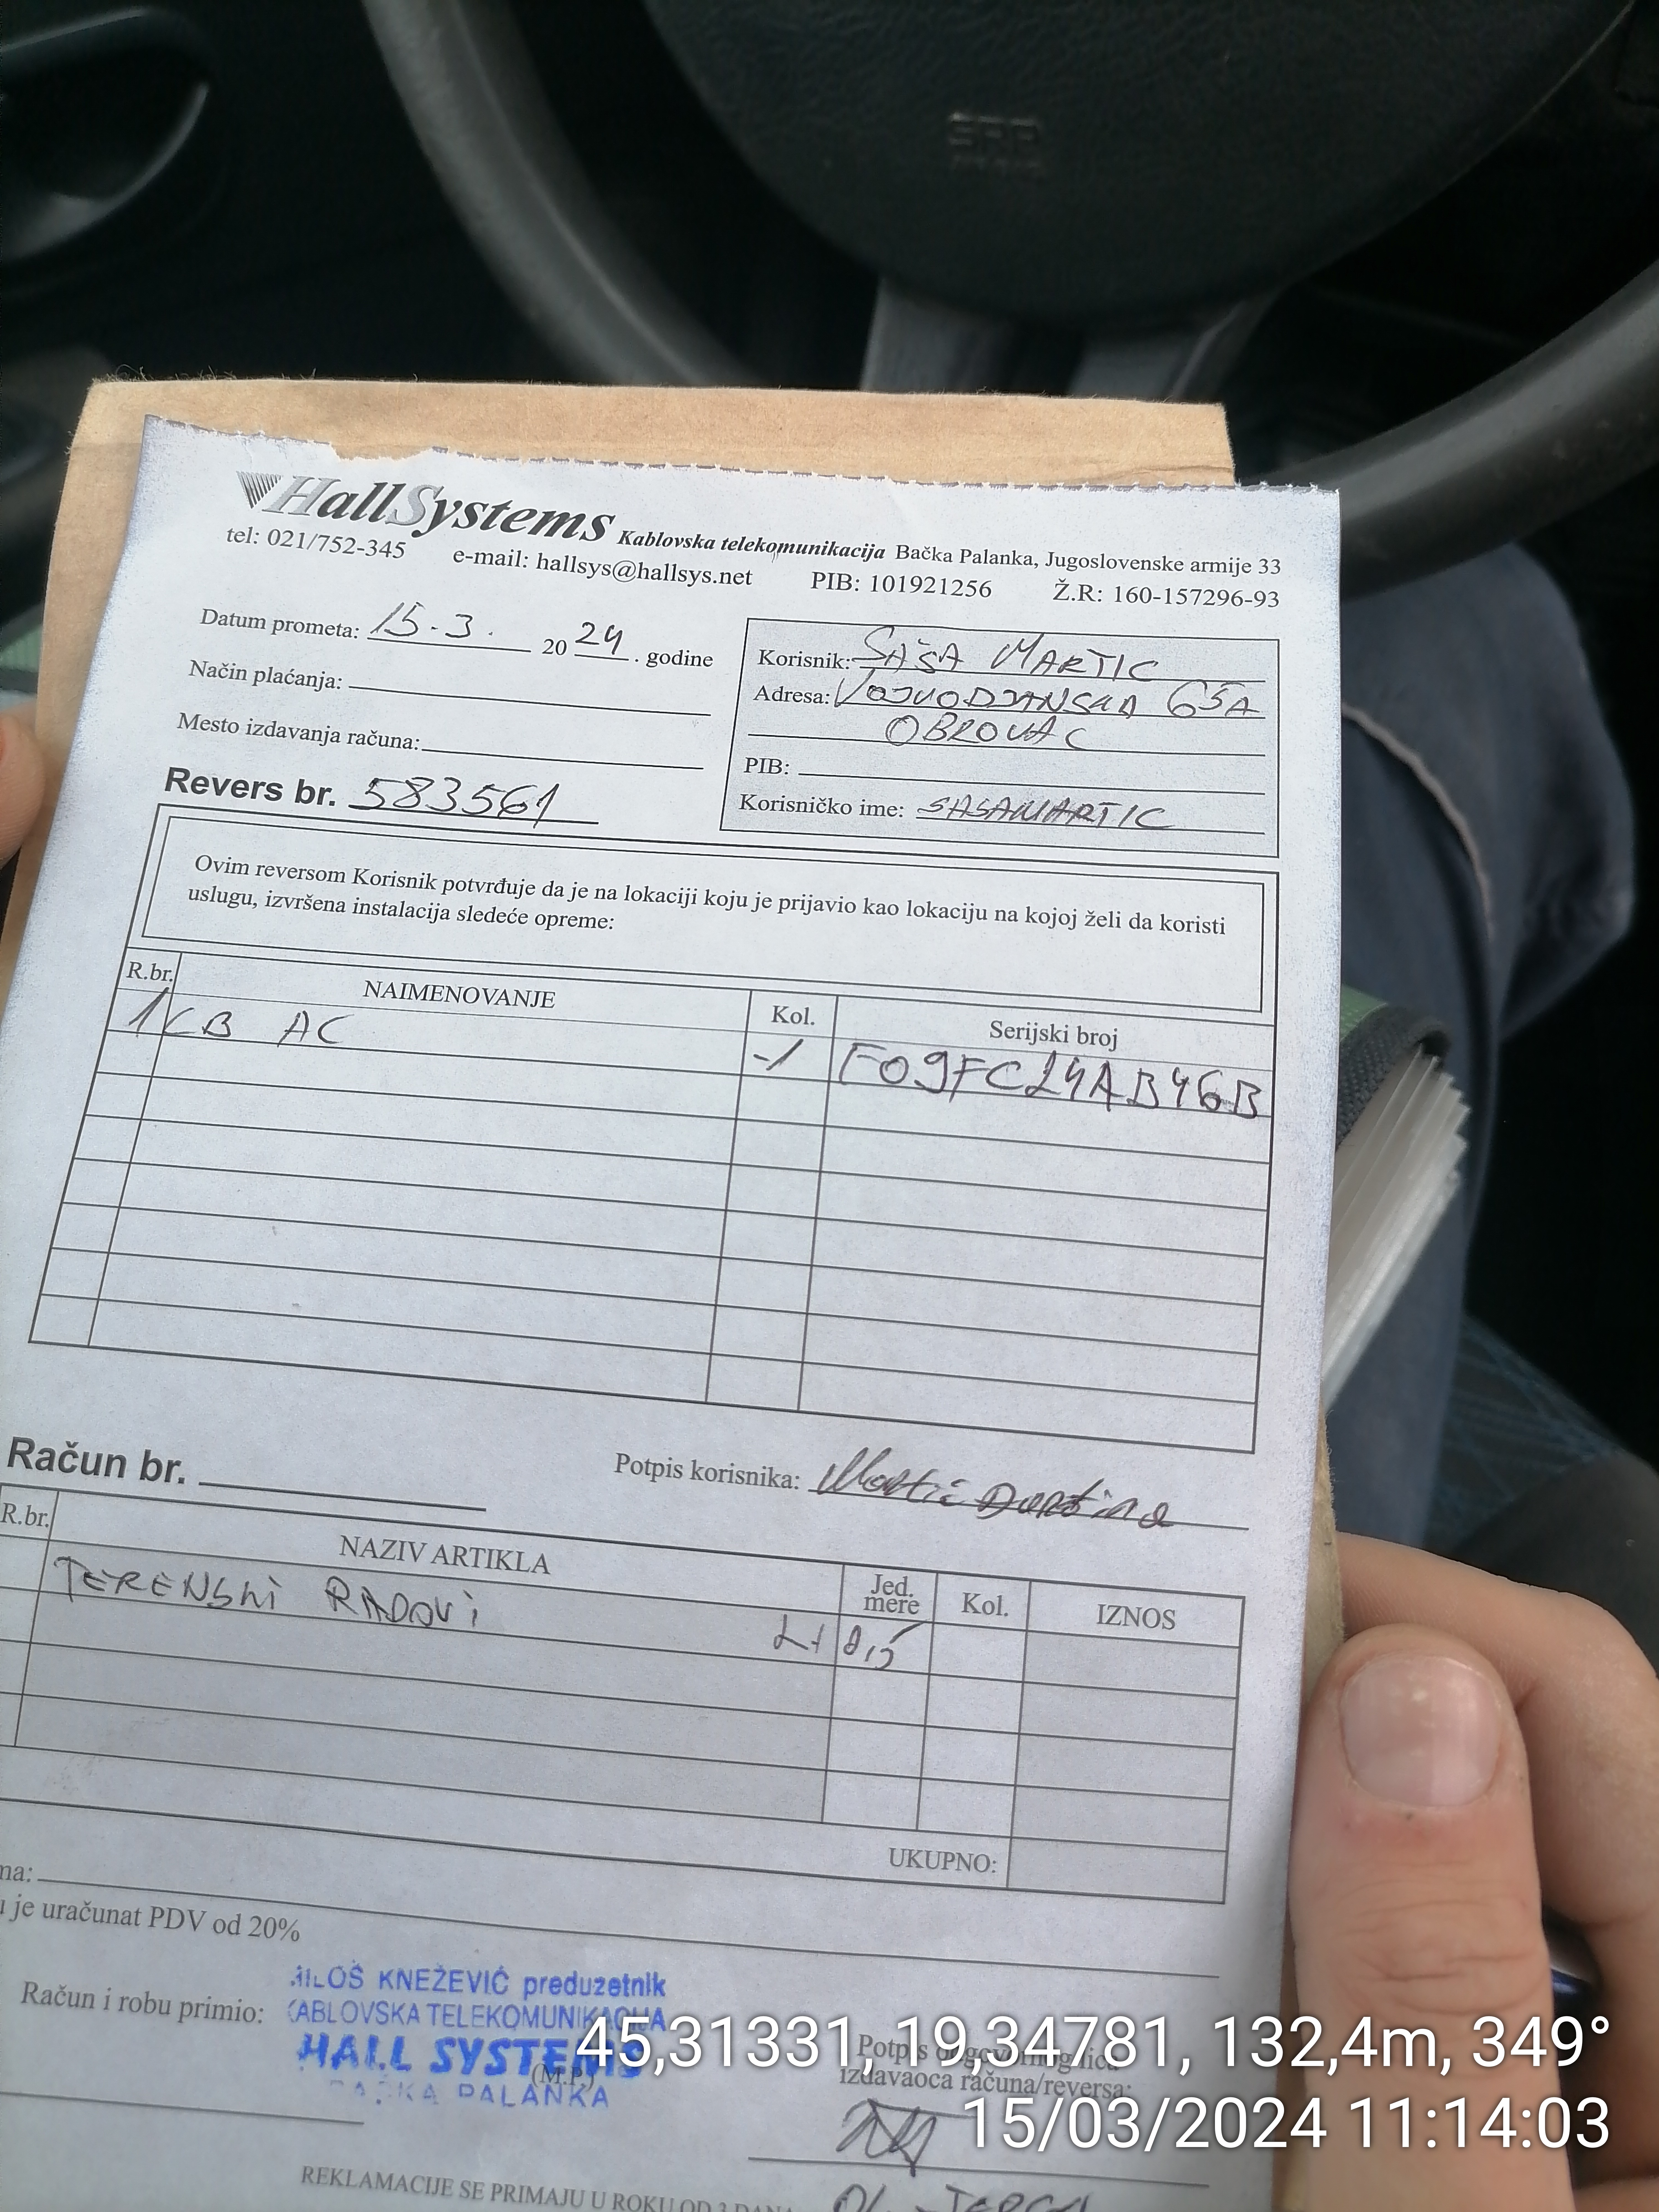 HallSystems Kablovska telekomunikacija Bačka Palanka, Jugoslovenske armije 33
tel: 021/752-345 e-mail: hallsys@hallsys.net PIB: 101921256 Ž.R: 160-157296-93
Datum prometa: 15.3. 2024. godine
Način plaćanja:
Mesto izdavanja računa:
Revers br. 583561
Korisnik: SAŠA MARTIC
Adresa: VOJVODJANSKA 65A
OBROVAC
PIB:
Korisničko ime: SASAMARTIC
Ovim reversom Korisnik potvrđuje da je na lokaciji koju je prijavio kao lokaciju na kojoj želi da koristi
uslugu, izvršena instalacija sledeće opreme:
R.br. NAIMENOVANJE Kol. Serijski broj
1 LB AC -1 F09FC24AB46B
Račun br. Potpis korisnika: Martić
R.br. NAZIV ARTIKLA Jed. mere Kol. IZNOS
TERENSKI RADOVI L1 0,5
UKUPNO:
ma:
u je uračunat PDV od 20%
Računi i robu primio:
MILOŠ KNEŽEVIĆ preduzetnik
KABLOVSKA TELEKOMUNIKACIJA
HALL SYSTEMS
(M.P.)
BAČKA PALANKA
Potpis odgovornog lica
izdavaoca računa/reversa:
REKLAMACIJE SE PRIMAJU U ROKU OD 3 DANA
45,31331, 19,34781, 132,4m, 349°
15/03/2024 11:14:03